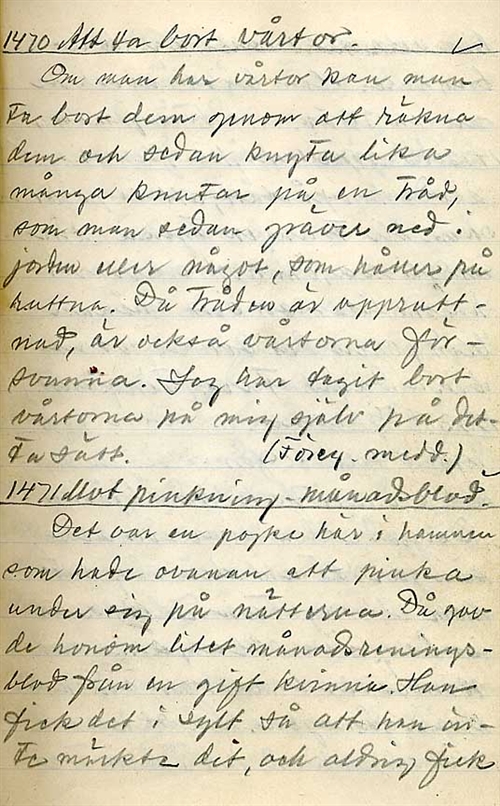 1470 Att ta bort vårtor.
Om man har vårtor kan man
ta bort dem genom att räkna
dem och sedan knyta lika
många knutar på en tråd,
som man sedan gräver ned i
jorden eller något, som håller på
ruttna. Då tråden är upprutt-
nad, är också vårtorna för-
svunna. Jag har tagit bort
vårtorna på mig själv på det-
ta sätt. (Föreg. medd.)
1471 Mot pinkning - månadsblod.
Det var en pojke här i hamnen
som hade ovanan att pinka
under sig på nätterna. Då gav
de honom litet månadsrenings-
blod från en gift kvinna. Han
fick det i sylt så att han in-
te märkte det, och aldrig fick